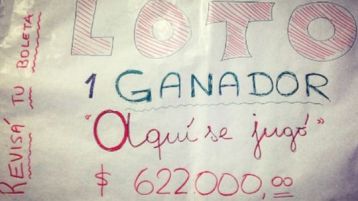 LOTO
1 GANADOR
"Aquí se jugó"
$ 622000,00
REVISÁ TU BOLETA